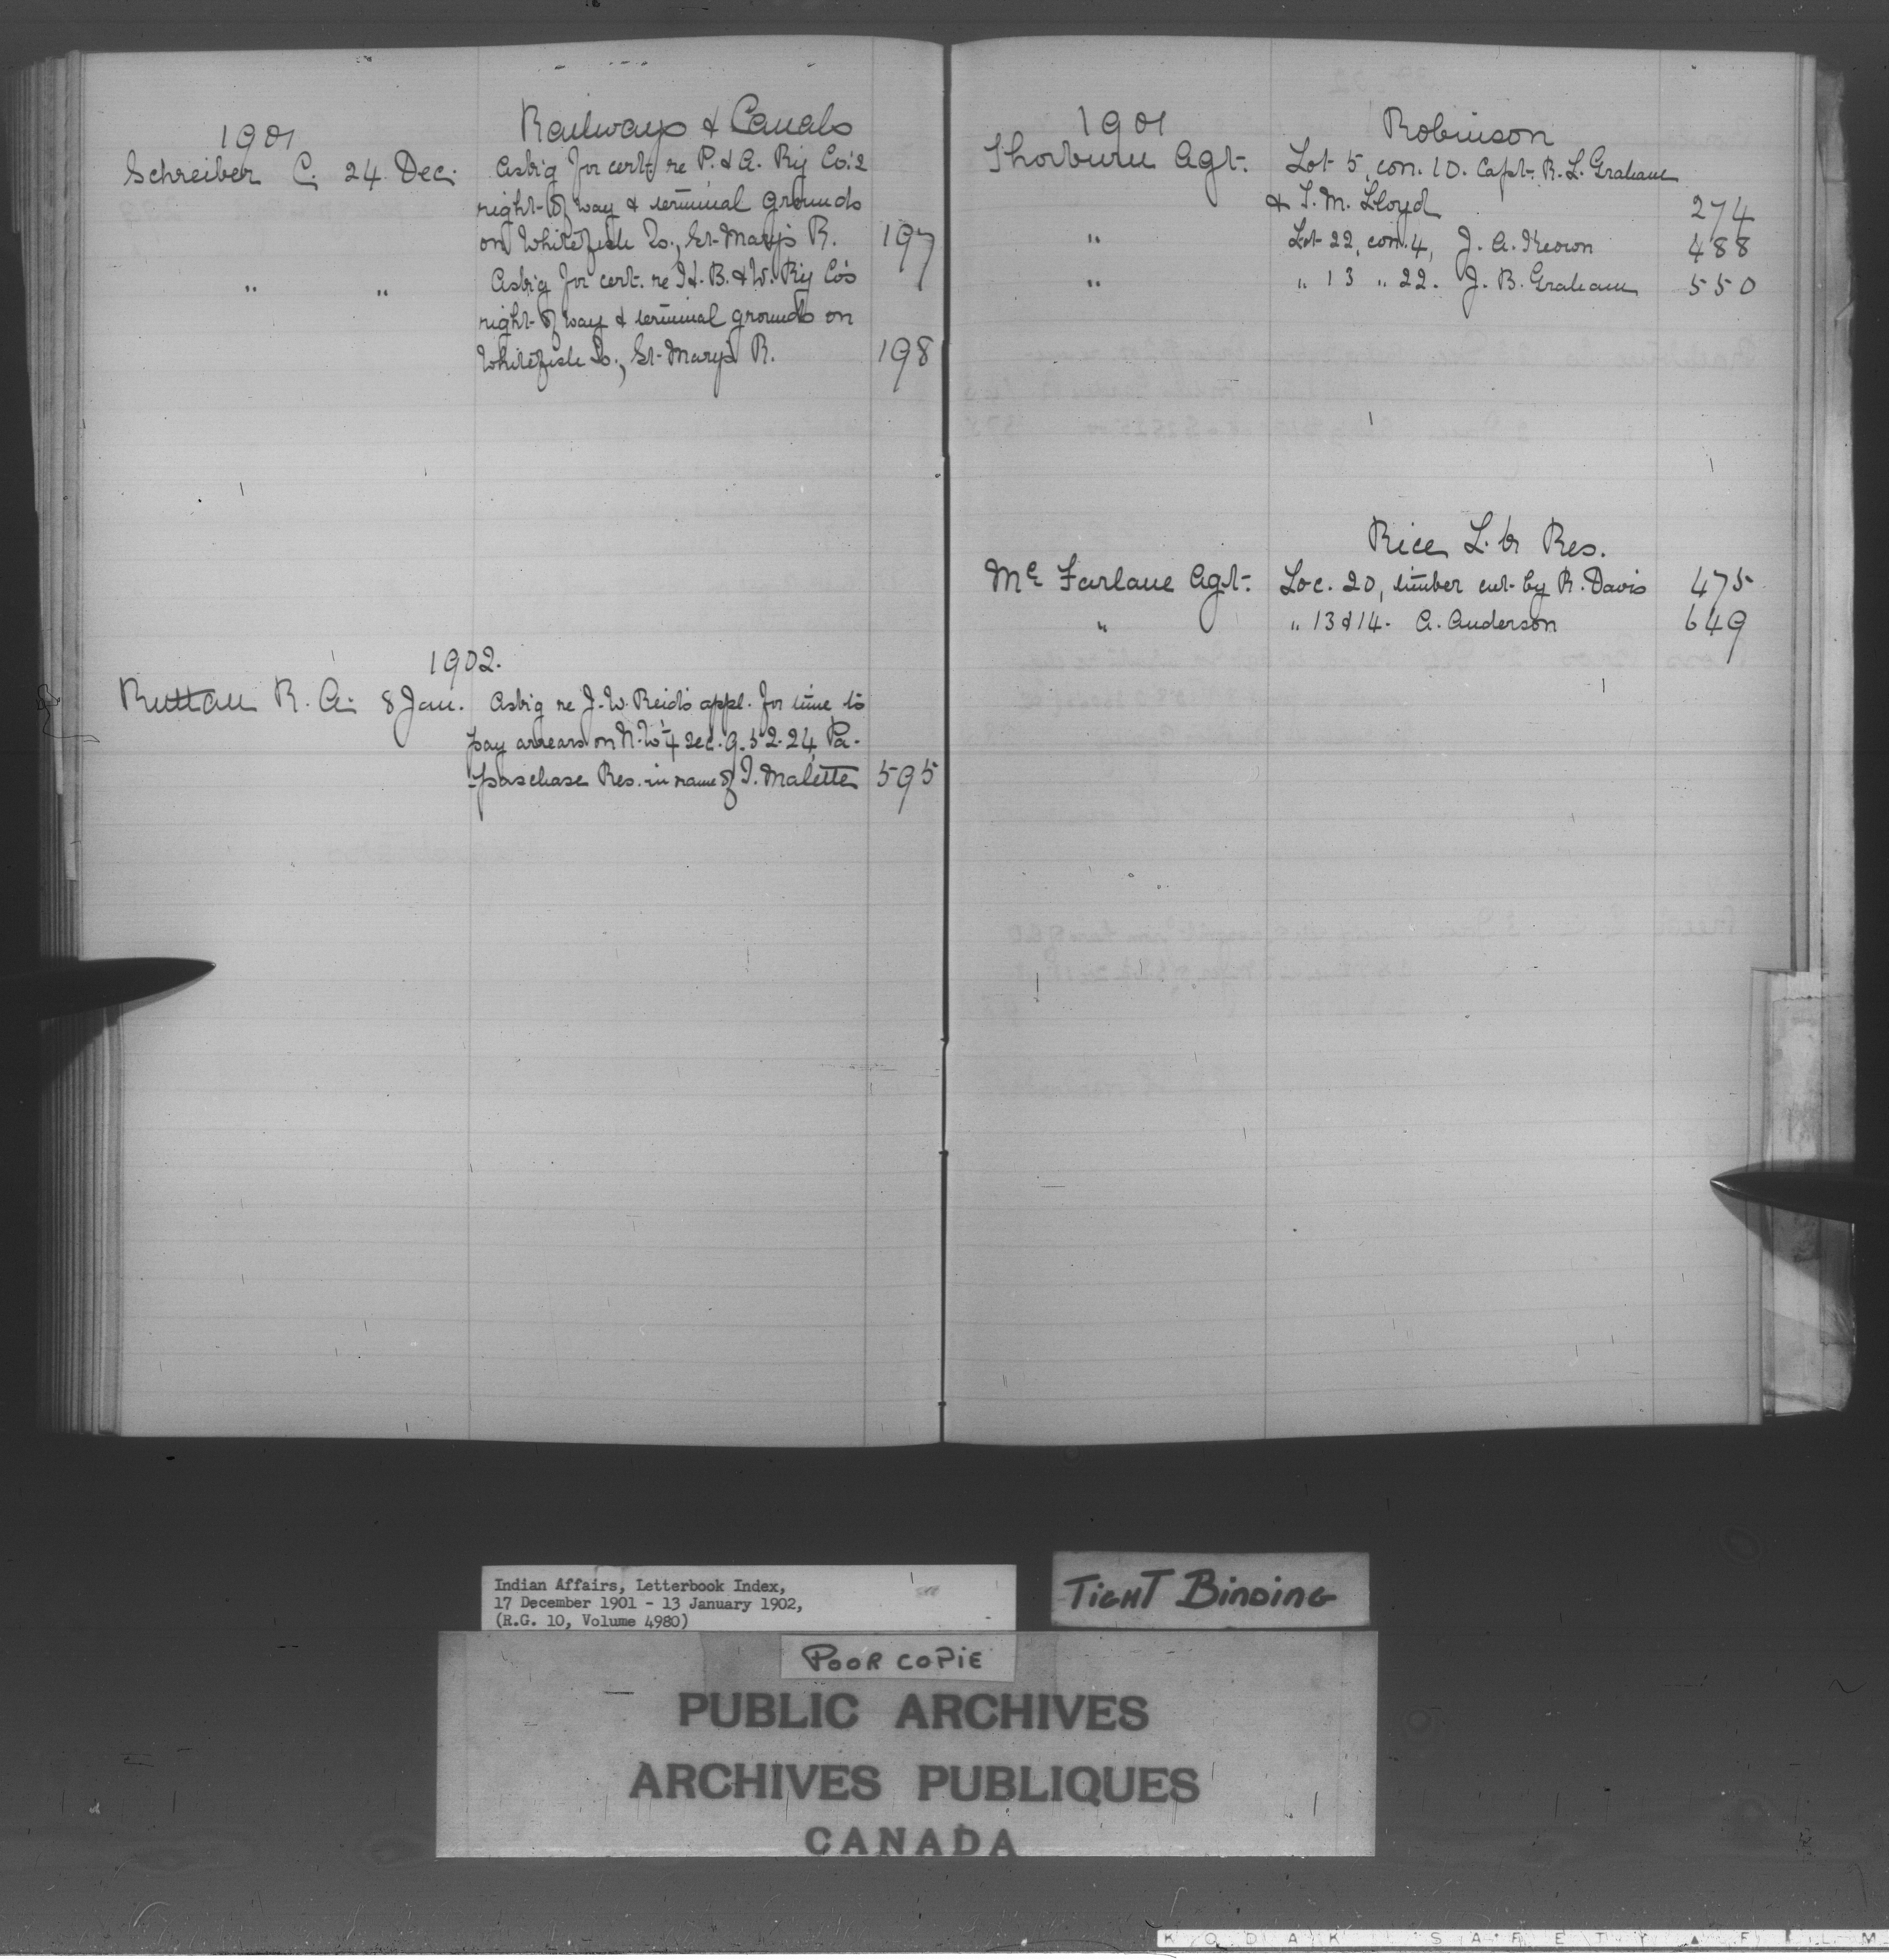 1901
Railways & Canals
Schreiber C. 24 Dec. Ask'g for cert. re P. & A. R'y Co.'s
right of way & terminal grounds
on Whitefish Is., St. Mary's R. 197
" " Ask'g for cert. re H. B. & W. R'y Co's
right of way & terminal grounds on
Whitefish Is., St. Mary's R. 198
1902.
Ruttan R. A. 8 Jan. Ask'g re J. W. Reid's appl. for time to
pay arrears on N.W. ¼ sec. 9. 52. 24, Pa-
-paschase Res. in name of I. Malette 595
1901
Robinson
Thorburn Agt. Lot 5, con. 10. Capt. R. L. Graham
& T. M. Lloyd 274
" Lot 22, con. 4, J. A. Keown 488
" " 13 " 22. J. B. Graham 550
Rice L. Res.
Mc Farlane Agt. Loc. 20, timber cut by R. Davis 475
" " 13 & 14. A. Anderson 649
Indian Affairs, Letterbook Index,
17 December 1901 - 13 January 1902,
(R.G. 10, Volume 4980)
TIGHT BINDING
POOR COPIE
PUBLIC ARCHIVES
ARCHIVES PUBLIQUES
CANADA
KODAK SAFETY ▲ FILM